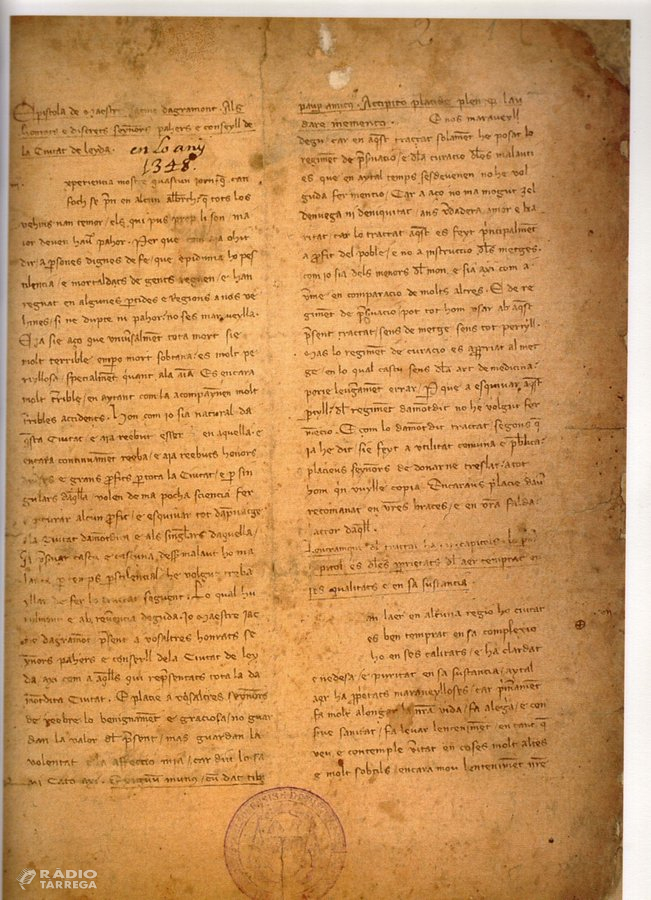 Epistola de Maestre Jacme dagramont. Als
honrats e discrets seynors pahers e conseyll de
la Ciutat de leyda. en Lo any
1348.
xperiencia mostra e quascun jorn q can
foch se pren en alcun alberch q tots los
vehins nan temor, els qui pus prop li son ma
ior deuen hauer pahor. Per que com ha ohir
dir a persones dignes de fe, que epidimia ho pes
tilencia, e mortaldats de gents regnen, e han
regnat en algunes partides e regions a nos ve
hines, si ne dupte ni pahor, no ses maraueylla.
E ja sie aço que vniuersalment tota mort sie
molt terrible empero mort sobtana, es molt pe
ryllosa, specialment quant ala aia. Es encara
molt terrible, en aytant com la acompaynen molt
terribles accidents. Hon com io sia natural da
questa Ciutat e aja reebut esser en aquella. e
encara continuament reeba, e aja reebuts honors
e grans profits per tota la Ciutat e per sin
gulars daquella, volen de ma pocha sciencia fer
procurar alcun profit, e esquiuar tot dampnatge
a la Ciutat damondita e als singulars daquella,
preseruar cascu e cascuna dessus malaut ho ma
lauta per temps pestilencial, he volgut treba
yllar de fer lo tractat seguent. Lo qual hu
milment e ab reuerencia deguda. Io Maestre Iac
me dagramont present a vosaltres honrats se
ynors pahers e conseyll dela Ciutat de ley
da. axi com a aquells qui representats tota la da
mondita Ciutat. E placie a vosaltres seynors
de reebre lo benignament e graciosa, no guar
dan la valor del present, mas guardan la
volentat e la affectio mia, car diu lo sa
ui Cato axi. Exiguum munus, cum dat tibi
pauper amicus. Accipito placide plene et lau
dare memento. E nos maraueyll
degu, car en aquest tractat solament he posat lo
regiment de preseruacio, e dela curacio deles malauti
es que en aytal temps sesdeuenen no he vol
guda fer mencio, Car a aço no ma mogut zel
denueja ni deniquitat, ans verdadera amor e ka
ritat, car lo tractat aquest es feyt principalment
a profit del poble, e no a instructio dels metges.
com io sia dels menors del mon, e sia axi com a
vme en comparacio de molts altres. E de re
giment de preseruacio, pot tot hom vsar ab aquest
present tractat, sens de metge sens tot peryll.
Mas lo regiment de curacio es appropriat al met
ge, en lo qual cascu sens dela art de medicina
porie leugerament errar. Per que a esquiuar aquest
peryll, del regiment damondit no he volgut fer
mencio. E com lo damondit tractat segons que
ia he dit, sie feyt a vtilitat comuna e publica.
placieus seynors de donarne treslat, a tot
hom qui vuylle copia. Encaraus placie dauer
recomanat en vostres braces, e en vostra falda
actor daquell.
Lentrament del tractat ha capitols. Lo primer
capitol es deles proprietats del aer temprat en
ses qualitats e en sa sustancia
an laer en alcuna regio ho ciutat
es ben temprat en sa complexio
ho en ses calitats, e ha clardat
e nedesa, e puritat en sa sustancia, aytal
aer ha propietats maraueylloses, car primerament
fa molt alongar la nostra vida, fa alegra, e con
serue sanitat, fa leuar lenteniment, en tant que
veu e contemple veritat en coses molt altes
e molt sobtils, encara mou lenteniment nostre
RÀDIO
TÀRREGA